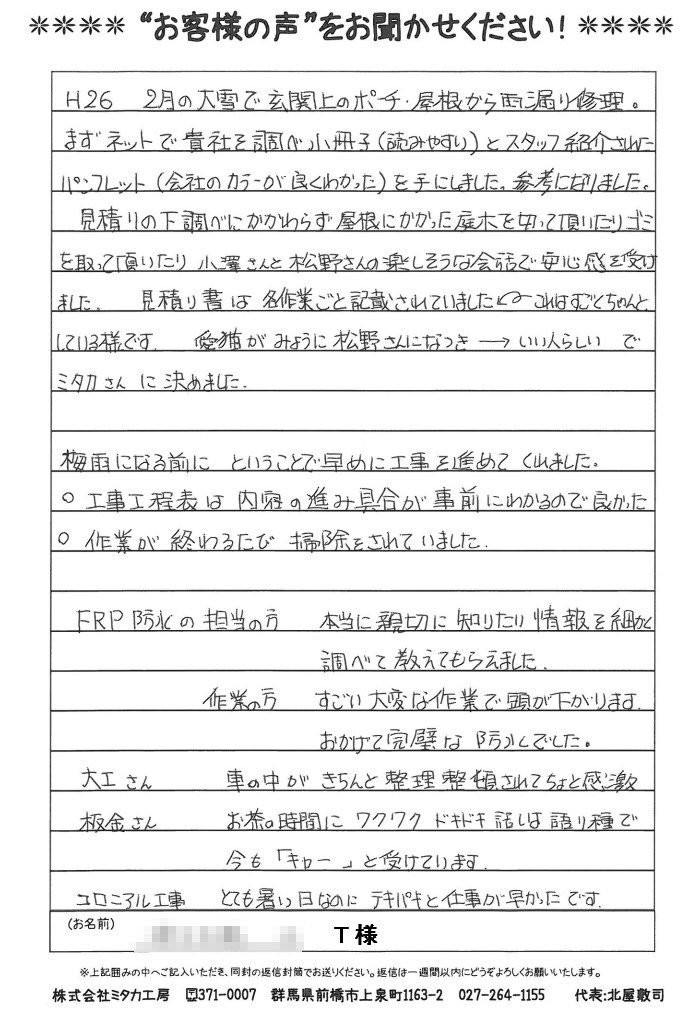 ＊＊＊＊ “お客様の声”をお聞かせください！ ＊＊＊＊
H26 2月の大雪で玄関上のポーチ・屋根から雨漏り修理。
まずネットで貴社を調べ小冊子(読みやすい)とスタッフ紹介された
パンフレット(会社のカラーが良くわかった)を手にしました。参考になりました。
見積りの下調べにかかわらず屋根にかかった庭木を切って頂いたりゴミ
を取って頂いたり 小澤さんと松野さんの楽しそうな会話で安心感を受け
ました。 見積り書は 各作業ごと記載されていました ← これはすごくちゃんと
している様です。 愛猫がみょうに松野さんになつき → いい人らしい で
ミタカさんに決めました。
梅雨になる前に ということで早めに工事を進めてくれました。
○ 工事工程表は内容の進み具合が事前にわかるので良かった
○ 作業が終わるたび 掃除をされていました。
FRP防水の担当の方 本当に親切に知りたい情報を細かく
調べて教えてもらえました。
作業の方 すごい大変な作業で頭が下がります。
おかげで完璧な防水でした。
大工さん 車の中がきちんと整理整頓されてちょと感激
板金さん お茶の時間にワクワクドキドキ話しは語り種で
今も「キャー」と受けています。
コロニアル工事 とても暑い日なのにテキパキと仕事が早かったです。
(お名前) T様
※上記囲みの中へご記入いただき、同封の返信封筒でお送りください。返信は一週間以内にどうぞよろしくお願いいたします。
株式会社ミタカ工房 〒371-0007 群馬県前橋市上泉町1163-2 027-264-1155 代表:北屋敷司